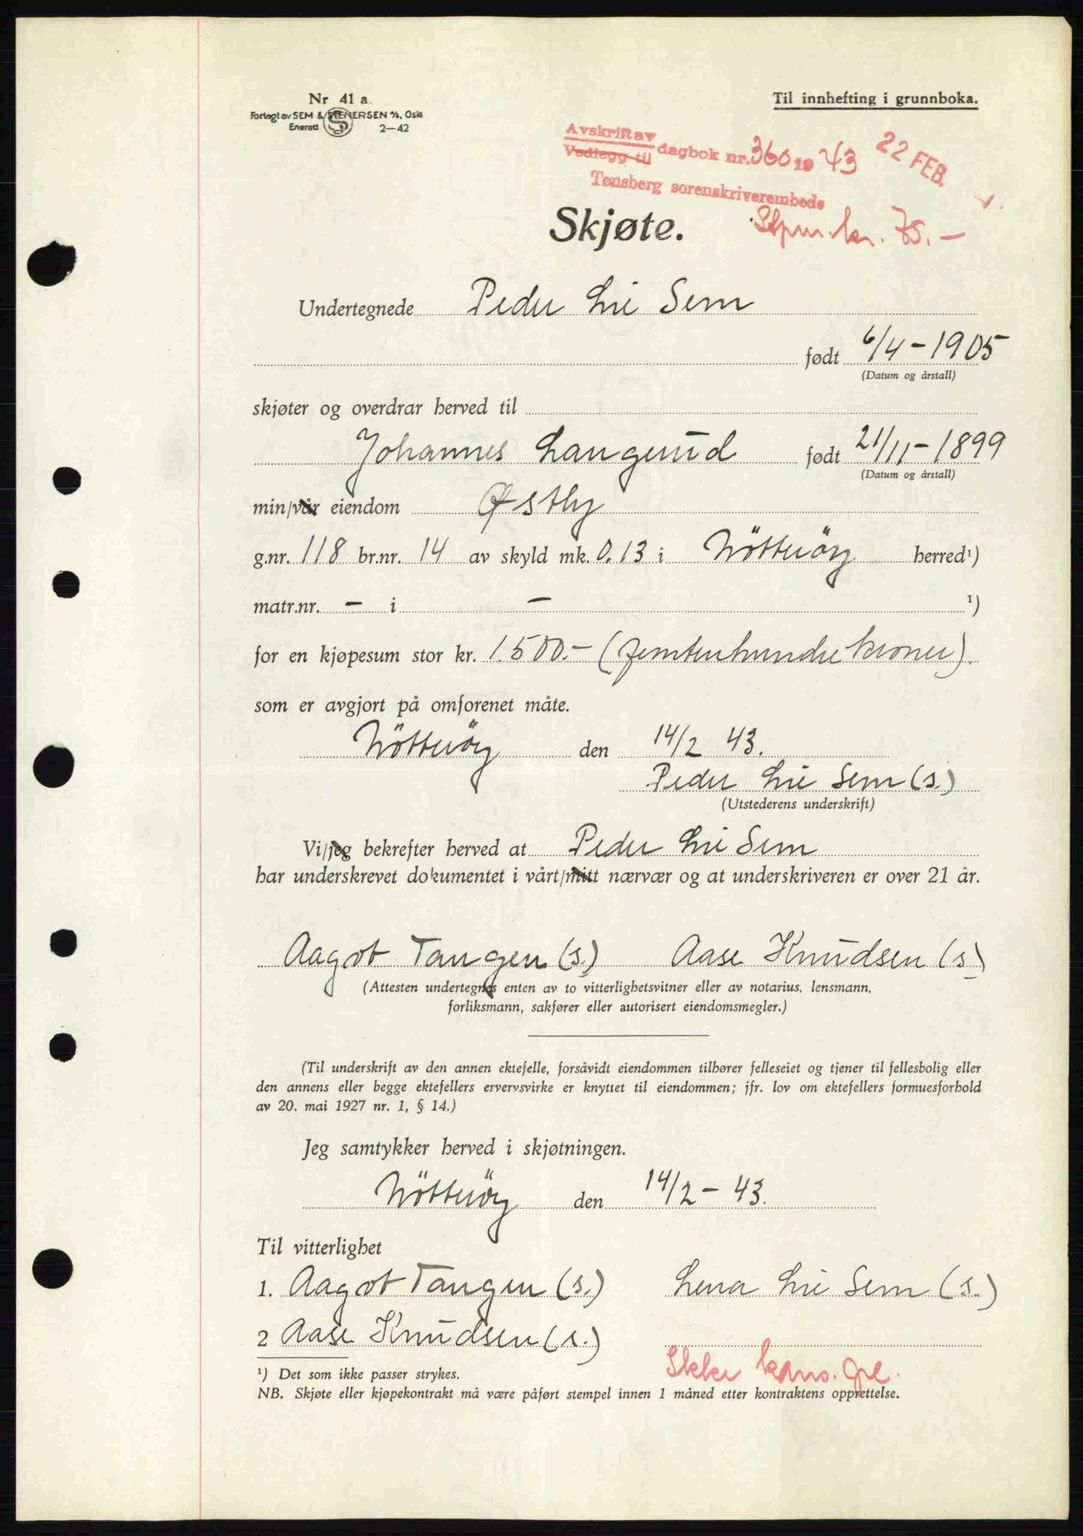 Nr 41 a.
Forlagt av SEM & STENERSEN A/S, Oslo
Enerett 2—42
Til innhefting i grunnboka.
Avskrift av
Vedlegg til dagbok nr. 360 19 43 22 FEB.
Tønsberg sorenskriverembede
Skjøte.
Stpm. kr. 75.-
Undertegnede Peder Lie Sem
født 6/4-1905
(Datum og årstall)
skjøter og overdrar herved til
Johannes Langerud født 21/11-1899
(Datum og årstall)
min/vår eiendom Østby
g.nr. 118 br.nr. 14 av skyld mk. 0.13 i Nötteröy herred¹)
matr.nr. - i - ¹)
for en kjøpesum stor kr. 1.500.- (femtenhundre kroner).
som er avgjort på omforenet måte.
Nötteröy den 14/2 43.
Peder Lie Sem (s.)
(Utstederens underskrift)
Vi/jeg bekrefter herved at Peder Lie Sem
har underskrevet dokumentet i vårt/mitt nærvær og at underskriveren er over 21 år.
Aagot Tangen (s.) Aase Knudsen (s)
(Attesten undertegnes enten av to vitterlighetsvitner eller av notarius, lensmann,
forliksmann, sakfører eller autorisert eiendomsmegler.)
(Til underskrift av den annen ektefelle, forsåvidt eiendommen tilhører felleseiet og tjener til fellesbolig eller
den annens eller begge ektefellers ervervsvirke er knyttet til eiendommen; jfr. lov om ektefellers formuesforhold
av 20. mai 1927 nr. 1, § 14.)
Jeg samtykker herved i skjøtningen.
Nötteröy den 14/2-43.
Til vitterlighet
1. Aagot Tangen (s.) Lena Lie Sem (s.)
2 Aase Knudsen (s.)
Ikke kons. gpl.
¹) Det som ikke passer strykes.
NB. Skjøte eller kjøpekontrakt må være påført stempel innen 1 måned etter kontraktens opprettelse.